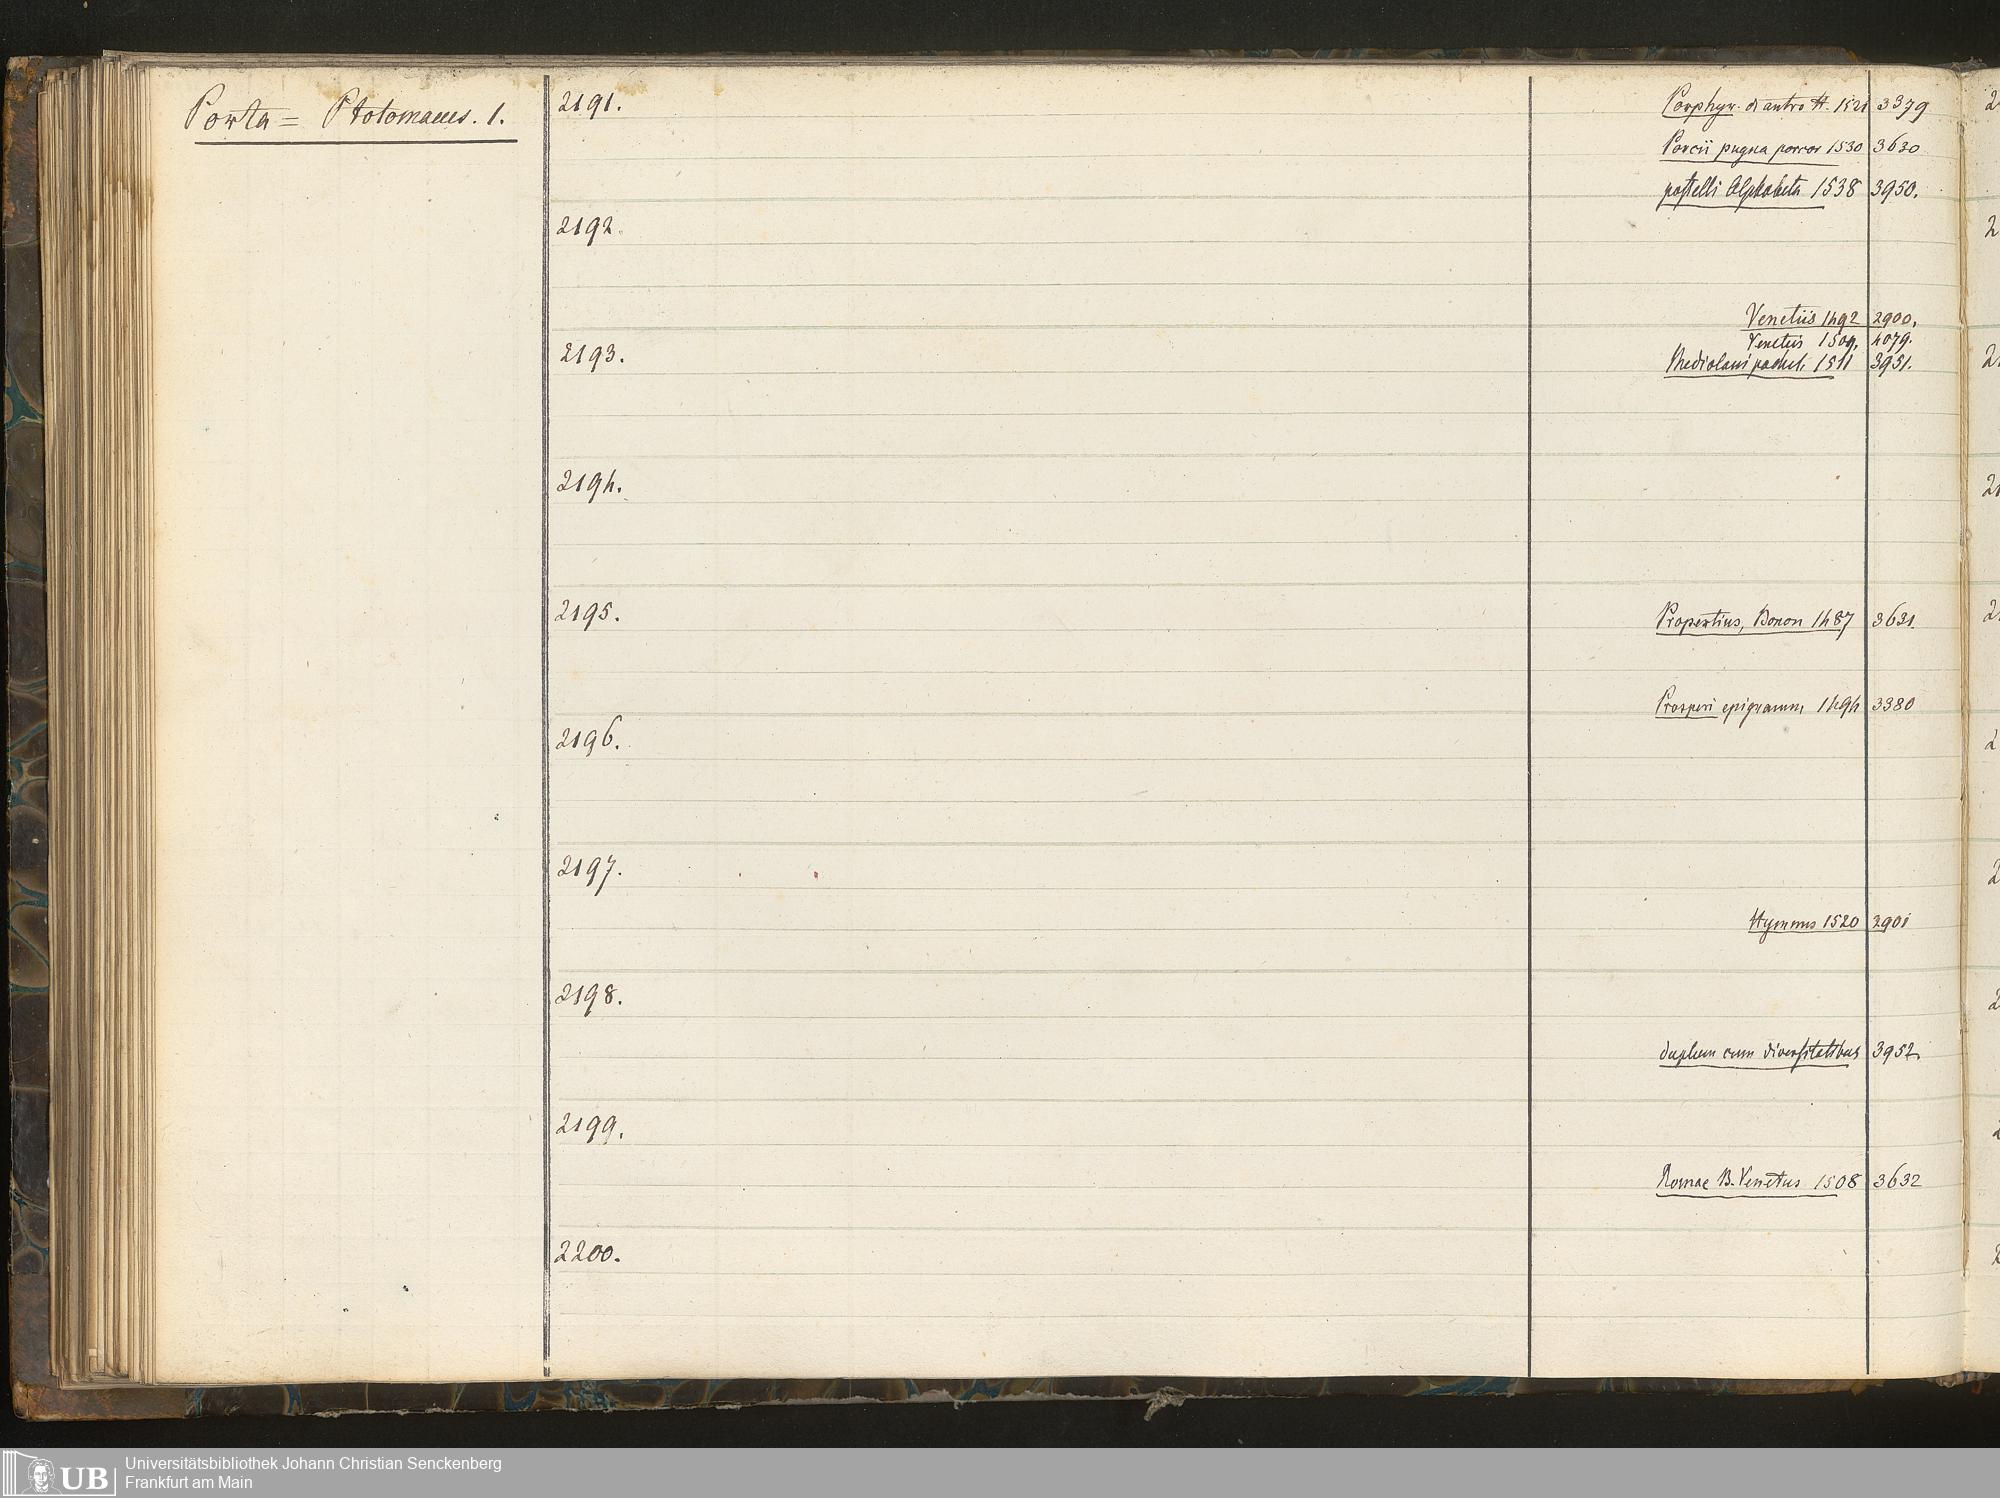 Porta = Ptolomaeus. 1.
2191.
Porphyr. d antro H. 1521 3379
Porcii pugna porcor 1530 3630
postelli Alphabeta 1538 3950.
2192.
Venetiis 1492 2900.
Venetiis 1509. 4079.
2193.
Mediolani 1511 3951.
2194.
2195.
Propertius, Bonon 1487 3631.
Prosperi epigramm, 1494 3380
2196.
2197.
Hymnus 1520 2901
2198.
duplum cum diversitatibus 3952
2199.
Romae B. Venetus 1508 3632
2200.
UB
Universitätsbibliothek Johann Christian Senckenberg
Frankfurt am Main